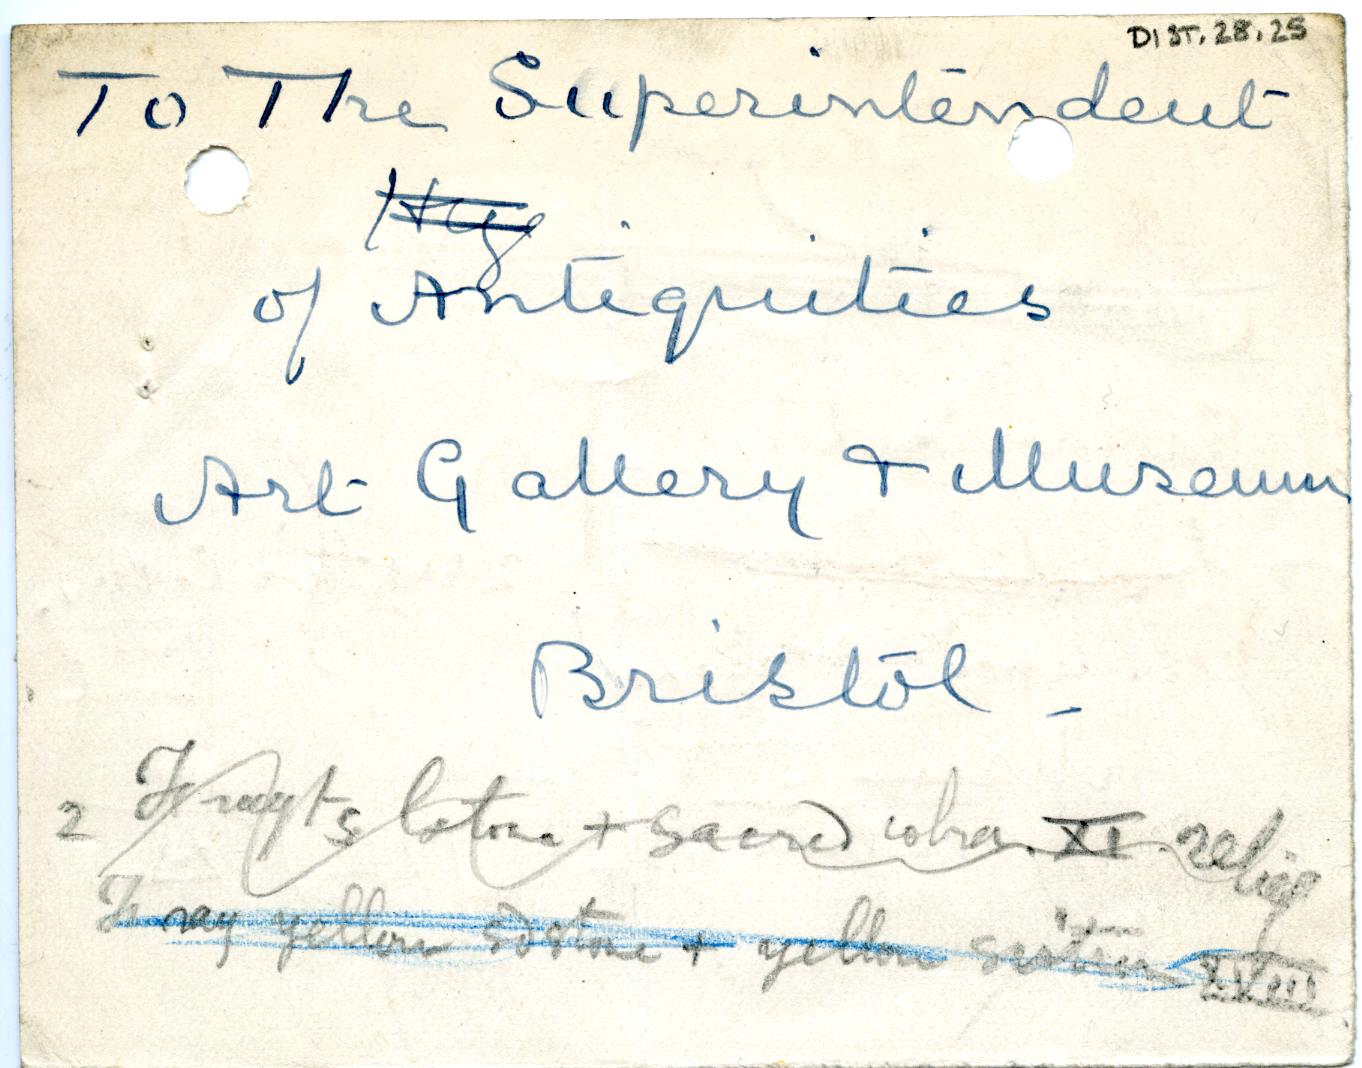 DIST. 28.25
To The Superintendent
Hyg
of Antiquities
Art Gallery + Museum
Bristol -
2 Fragts lstone + sacred cobra. XI. relief
Frag yellow sdstone + yellow sistrum XVIII